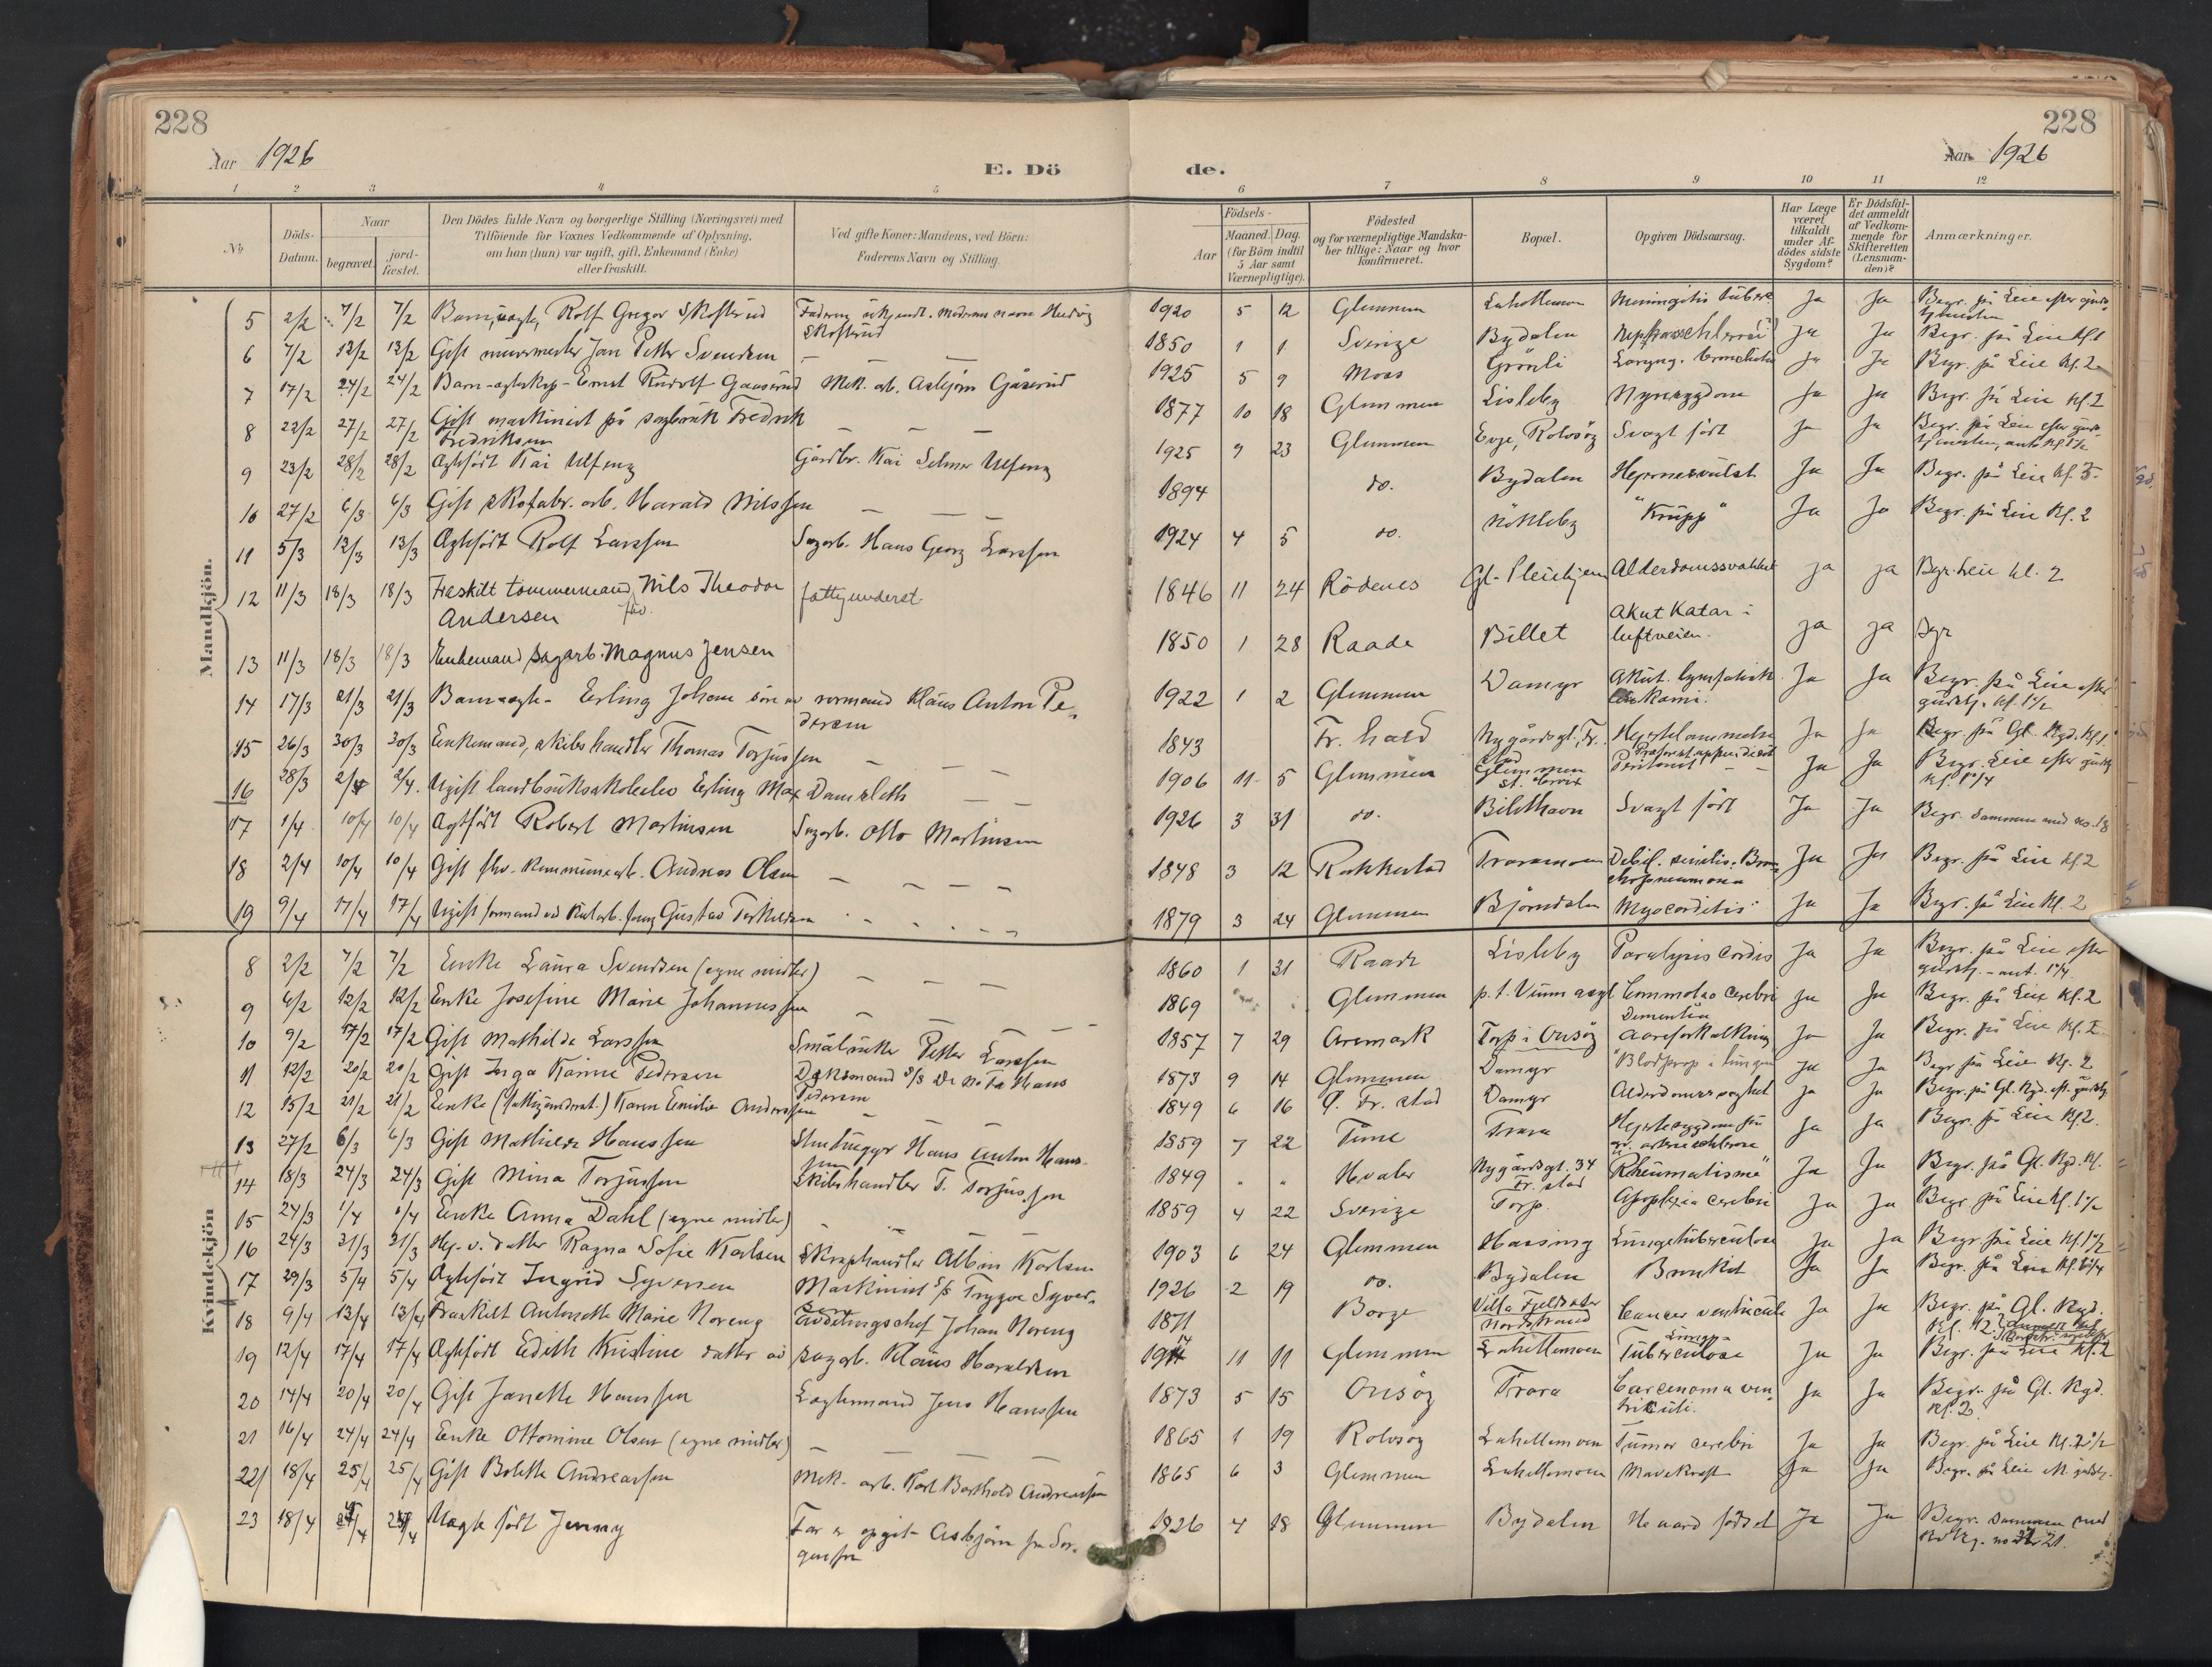 228
Aar 1926
E. Dö
1 2 3 4 5
No.
Döds-Datum.
Naar
begravet.
jord-fæstet.
Den Dödes fulde Navn og borgerlige Stilling (Næringsvei) med
Tilföiende for Voxnes Vedkommende af Oplysning,
om han (hun) var ugift, gift, Enkemand (Enke)
eller fraskilt.
Ved gifte Koner: Mandens, ved Börn:
Faderens Navn og Stilling.
Mandkjön.
5 2/2 7/2 7/2 Barn, uægte, Rolf Gregor Skofterud Faderen ukjendt. Moderens navn Hedvig
Skofterud
6 7/2 12/2 12/2 Gift murermester Jan Petter Svendsen
7 17/2 24/2 24/2 Barn - Ernst Rudolf Gaaserud Mek. arb. Asbjörn Gåserud
8 22/2 27/2 27/2 Gift maskinist på sagbruk Fredrik
Fredriksen
9 23/2 28/2 28/2 Ægtefödt Kai Ulfeng Gårdbr. Kai Selmer Ulfeng
10 27/2 6/3 6/3 Gift skofabr. arb. Harald Nilssen
11 5/3 12/3 13/3 Ægtefödt Rolf Larssen Sagarb. Hans Georg Larssen
12 11/3 18/3 18/3 Fraskilt tömmermand Nils Theodor fattigunderst.
Andersen
13 11/3 18/3 18/3 Enkemand sagarb. Magnus Jensen
14 17/3 21/3 21/3 Barn - Erling Johan sön av formand Klaus Anton Pe-
dersen
15 26/3 30/3 30/3 Enkemand, skibshandler Thomas Torjussen
16 28/3 2/4 2/4 Ugift landbruksskoleelev Erling Max Damsleth
17 1/4 10/4 10/4 Ægtefödt Robert Martinsen Sagarb. Otto Martinsen
18 2/4 10/4 10/4 Gift fhv. kommunearb. Andreas Olsen
19 9/4 17/4 17/4 Ugift formand Gustav Torkildsen
Kvindekjön
8 2/2 7/2 7/2 Enke Laura Svendsen (egne midler)
9 6/2 12/2 12/2 Enke Josefine Marie Johannessen
10 9/2 17/2 17/2 Gift Mathilde Larssen Petter Larssen
11 12/2 20/2 20/2 Gift Inga Karine Pedersen Dæksmand Hans
Pedersen
12 15/2 21/2 21/2 Enke (fattigunderst.) Karen Emilie Anderssen
13 27/2 6/3 6/3 Gift Mathilde Hanssen Stenhugger Hans Anton Hans-
sen
14 18/3 24/3 24/3 Gift Mina Torjussen Skibshandler T. Torjussen
15 24/3 1/4 1/4 Enke Anna Dahl (egne midler)
16 24/3 31/3 31/3 Hj. v. datter Ragna Sofie Karlsen Skraphandler Albin Karlsen
17 29/3 5/4 5/4 Ægtefödt Ingrid Syversen Maskinist s/s Trygve Syver-
sen
18 9/4 13/4 13/4 Fraskilt Antonette Marie Noreng Avdelingschef Johan Noreng
19 12/4 17/4 17/4 Ægtefödt Edith Kristine datter av sagarb. Klaus Haraldsen
20 14/4 20/4 20/4 Gift Janette Hanssen Jens Hanssen
21 16/4 24/4 24/4 Enke Ottomine Olsen (egne midler)
22 18/4 25/4 25/4 Gift Bolette Andreassen Mek. arb. Karl Barthold Andreassen
23 18/4 Uægte födt Jenny Far er opgit Asbjörn
228
Aar 1926
de.
6 7 8 9 10 11 12
Födsels-
Aar
Maaned. Dag.
(for Börn indtil
5 Aar samt
Værnepligtige).
Födested
og for værnepligtige Mandska-
ber tillige: Naar og hvor
konfirmeret.
Bopæl.
Opgiven Dödsaarsag.
Har Læge
været
tilkaldt
under Af-
dödes sidste
Sygdom?
Er Dödsfal-
det anmeldt
af Vedkom-
mende for
Skifteretten
(Lensman-
den)?
Anmærkninger.
1920 5 12 Glemmen Lahellemoen Meningitis Ja Ja Begr. på Leie efter
1850 1 1 Sverige Bydalen Ja Ja Begr. på Leie kl. 1
1925 5 9 Moss Grönli Laryng. bronchitis Ja Ja Begr. på Leie kl. 2
1877 10 18 Glemmen Lisleby Nyresygdom Ja Ja Begr. på Leie kl. 2
1925 9 23 Glemmen Evje, Rolvsöy Svagt født Ja Ja Begr. på Leie efter
1894 do. Bydalen Hjernesvulst Ja Ja Begr. på Leie kl. 3.
1924 4 5 do. Nökleby "Krupp" Ja Ja Begr. på Leie kl. 2
1846 11 24 Rödenes Gl. Pleiehjem Alderdomssvakhet ja ja Begr. Leie kl. 2
1850 1 28 Raade Billet Akut Katar i
luftveien. ja ja Begr
1922 1 2 Glemmen Damyr Akut lymfatisk Ja Ja Begr. på Leie efter
1843 Fr. hald Nygårdsgt., Fr.
stad Hjertelammelse Ja Ja Begr. på Gl. Kgd. kl. 1
1906 11 5 Glemmen Glemmen Ja Ja Begr. Leie efter
1926 3 31 do. Bilethavn Svagt födt Ja Ja Begr. sammen med no. 18
1848 3 12 Rakkestad Traramoen Debil. senilis. Bron-
chopneumonia Ja Ja Begr. på Leie kl. 2
1879 3 24 Glemmen Björndalen Myocarditis Ja Ja Begr. på Leie kl. 2
1860 1 31 Raade Lisleby Paralysis cordis Ja Ja Begr. på Leie efter
1869 Glemmen p.t. Commotio cerebri
Dementia Ja Ja Begr. på Leie kl. 2
1857 7 29 Aremark Torp i Onsöy Aareforkalkning Ja Ja Begr. på Leie kl. 2
1873 9 14 Glemmen Damyr "Blodprop i lungen Ja Ja Begr på Leie kl. 2
1849 6 16 Fr. stad Damyr Ja Ja Begr. på Gl. Kgd.
1859 7 22 Tune Trara Hjertesygdom Ja Ja Begr. på Leie kl. 2.
1849 " " Hvaler Nygårdsgt. 34
Fr. stad "Rheumatisme" Ja Ja Begr. på Gl. Kgd. kl.
1859 4 22 Sverige Torp. Apoplexia cerebri Ja Ja Begr. på Leie kl. 1 1/2
1903 6 24 Glemmen Hassing Lungetuberculose Ja Ja Begr. på Leie kl. 1 1/2
1926 2 19 do. Bydalen Bronkit Ja Ja Begr. på Leie
1871 Borge Villa
Nordstrand Cancer ventriculi Ja Ja Begr. på Gl. Kgd.
11 11 Glemmen Lahellemoen Lunge-
Tuberculose Ja Ja Begr. på Leie kl. 2
1873 5 15 Onsöy Trara Carcinoma ven-
triculi. Ja Ja Begr. på Gl. Kgd.
kl. 2.
1865 1 19 Rolvsöy Lahellemoen Tumor cerebri Ja Ja Begr. på Leie kl. 2 1/2
1865 6 3 Glemmen Lahellemoen Mavekræft Ja Ja Begr. på Leie
1926 4 18 Glemmen Bydalen Ja Ja Begr. sammen med